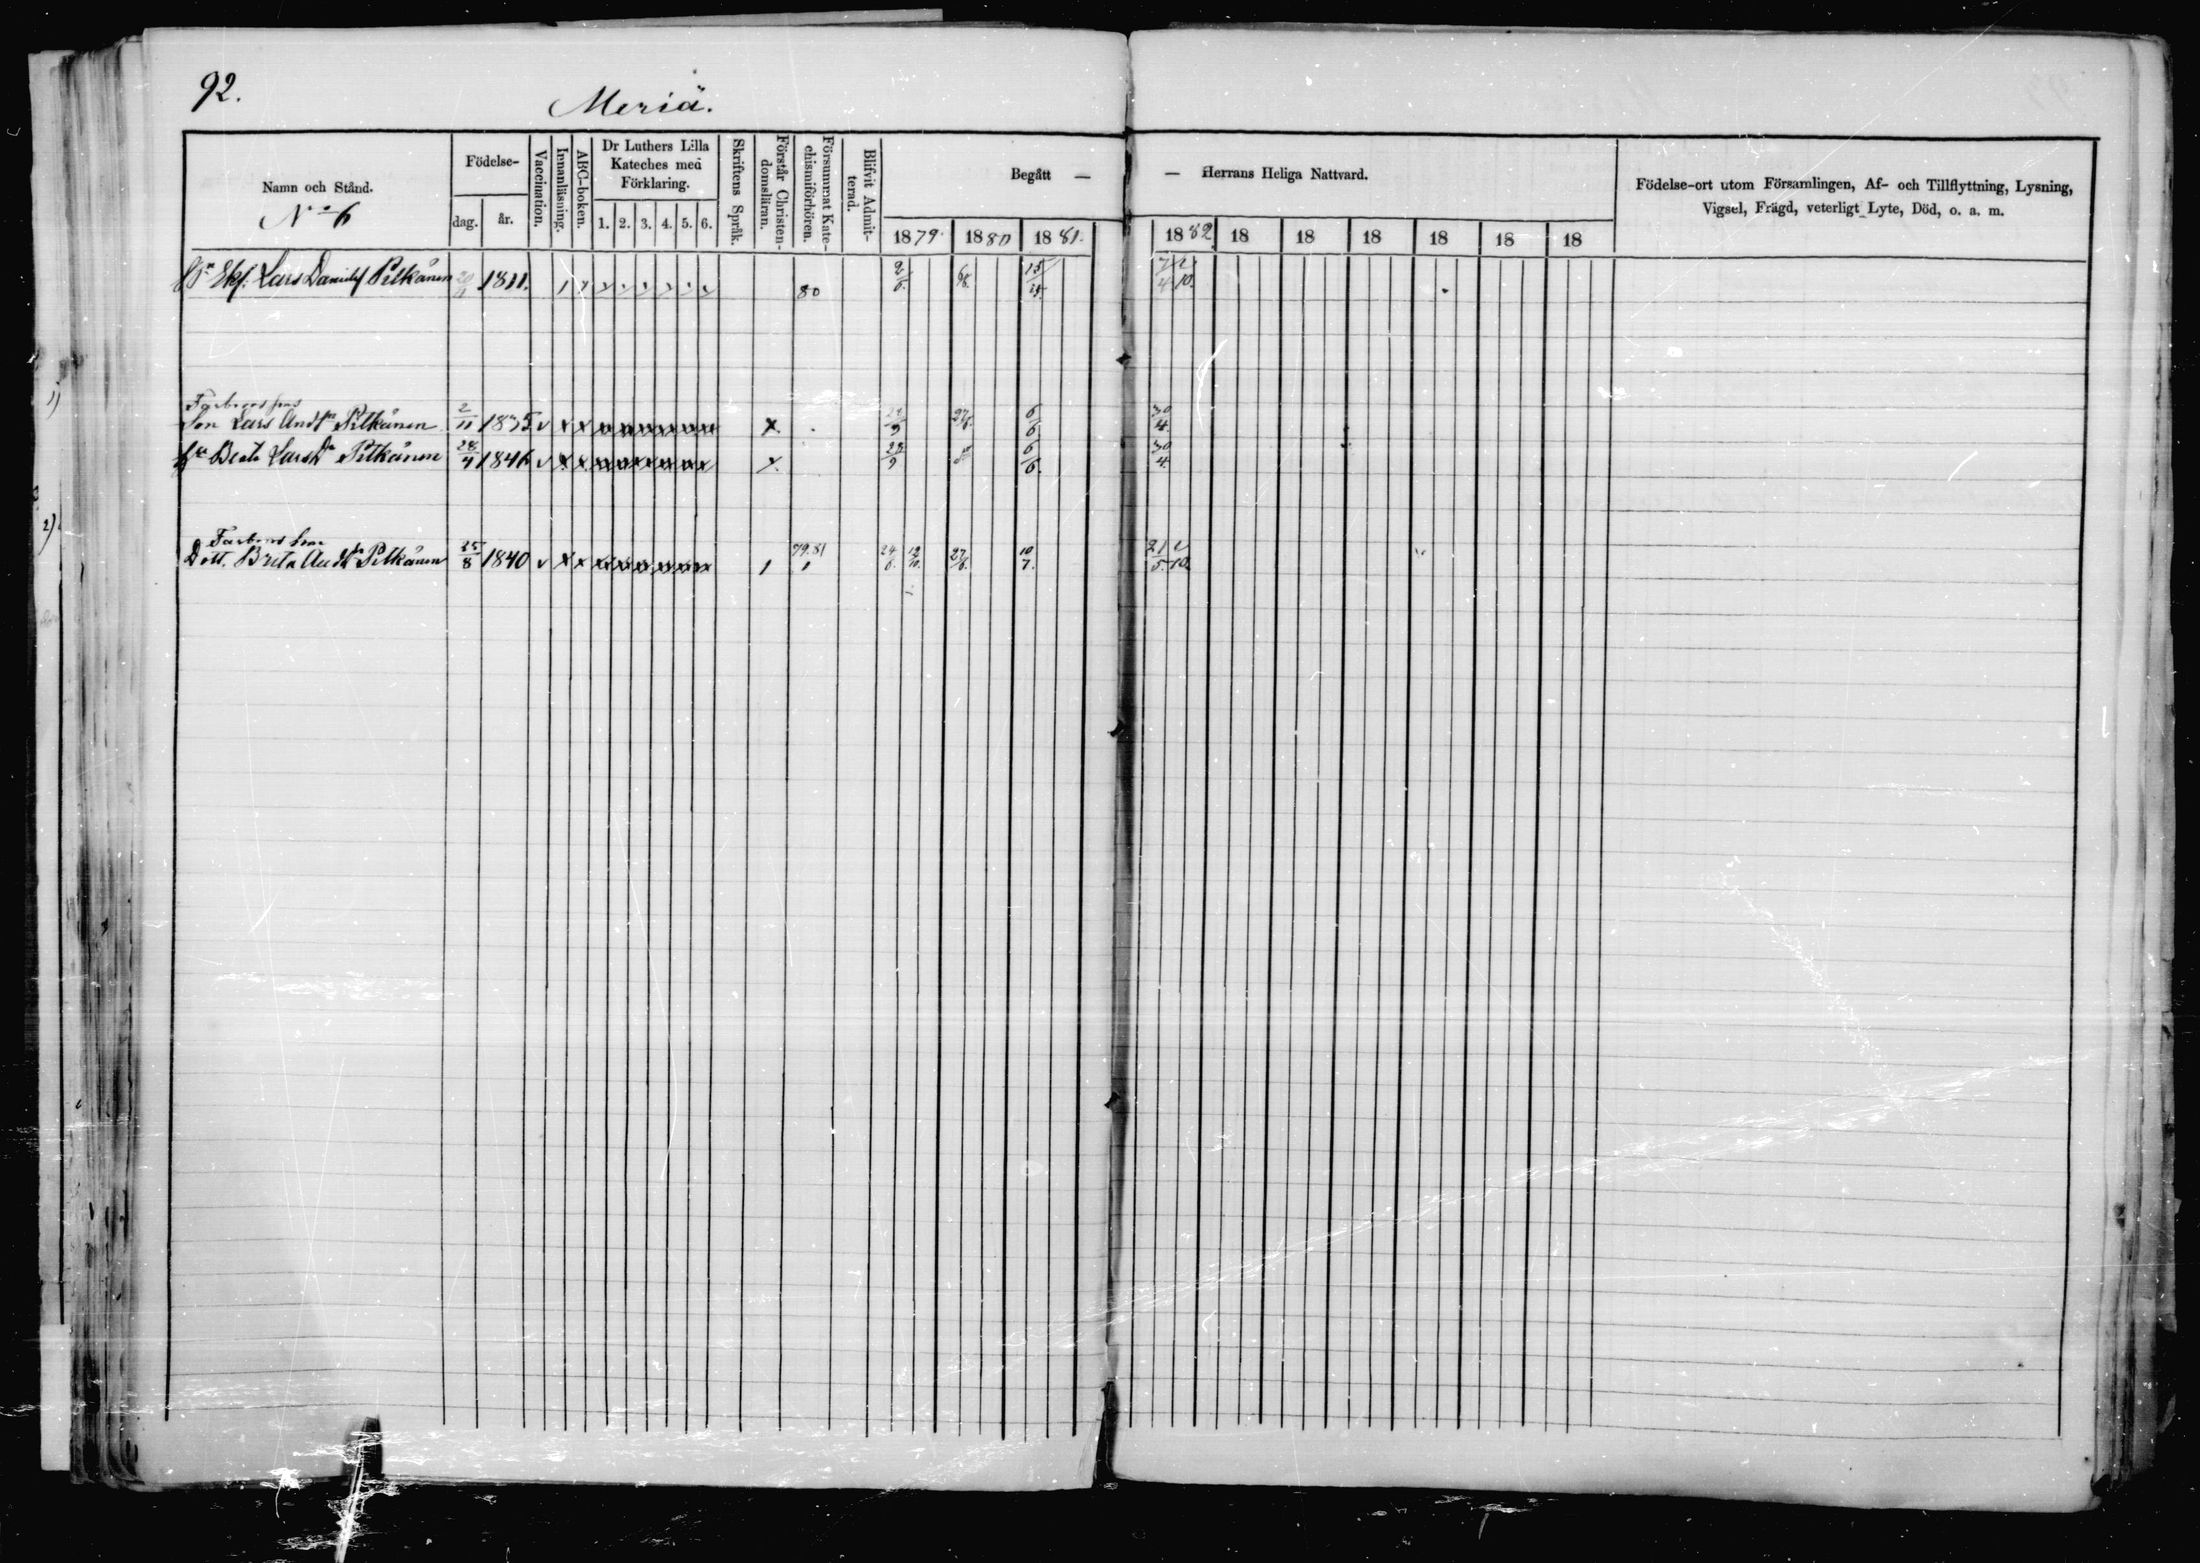 92.
Meriä.
Namn och Stånd.
No 6
Födelse-
dag.
år.
Vaccination.
Innanläsning.
ABC-boken.
Dr Luthers Lilla
Kateches med
Förklaring.
1. 2. 3. 4. 5. 6.
Skriftens Språk.
Förstår Christen-
domsläran.
Försummat Kate-
chismiförhören.
Blifvit Admit-
terad.
Begått —
— Herrans Heliga Nattvard.
1879. 1880 1881. 1882 18 18 18 18 18 18
Födelse-ort utom Församlingen, Af- och Tillflyttning, Lysning,
Vigsel, Frägd, veterligt Lyte, Död, o. a. m.
Lars Danielss Pitkänen 1811. 80
1)
Son Lars Pitkänen 2/11 1835 27/6 6/6 30/4
Beata Larsdr Pitkänen 1846 6/6 30/4
2)
Dott. Brita Pitkänen 25/8 1840 79.81 24/6 12/10 27/6 10/7.